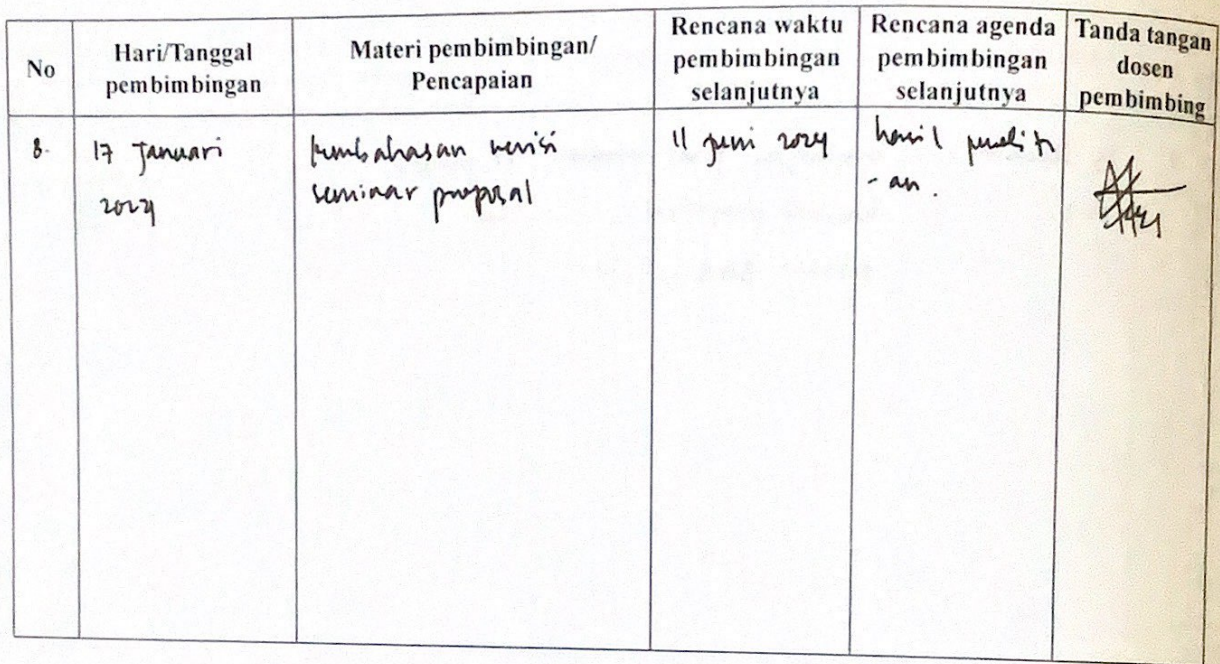 No
Hari/Tanggal
pembimbingan
Materi pembimbingan/
Pencapaian
Rencana waktu
pembimbingan
selanjutnya
Rencana agenda
pembimbingan
selanjutnya
Tanda tangan
dosen
pembimbing
8.
17 Januari
2024
pembahasan revisi
seminar proposal
11 juni 2024
hasil peneliti
-an.